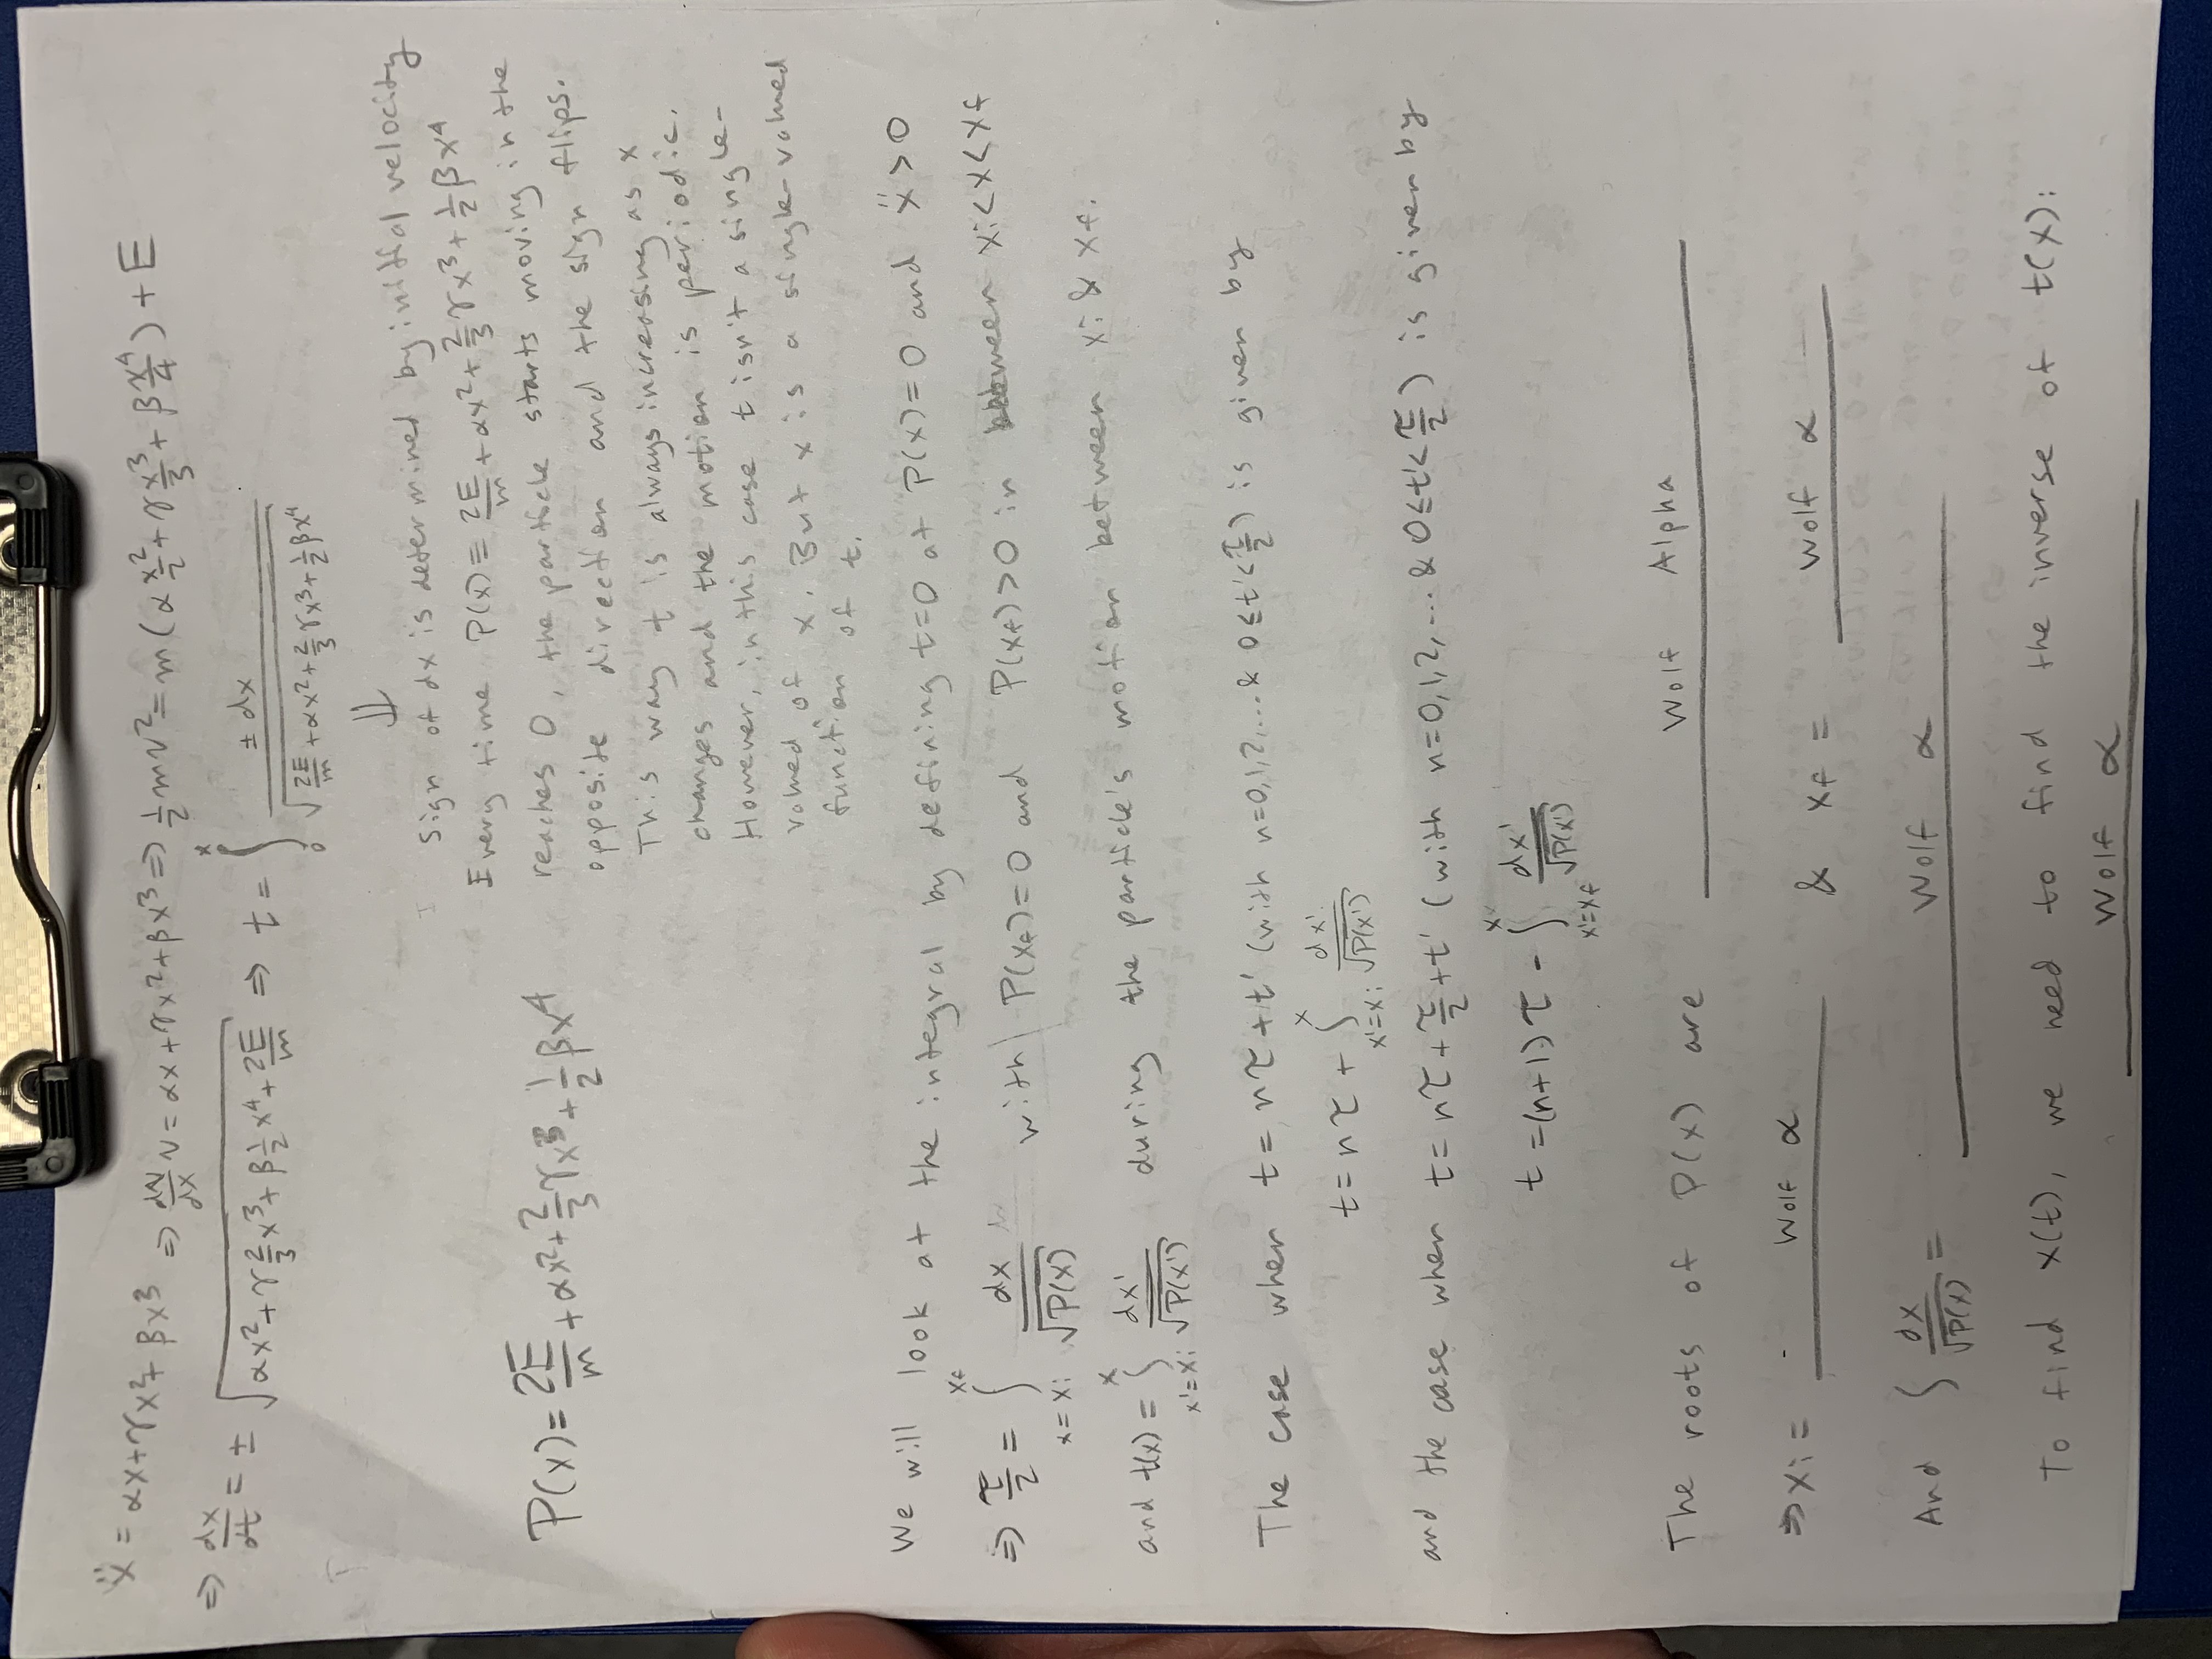 ẍ = αx + γx² + βx³ ⇒ dv/dx v = αx + γx² + βx³ ⇒ 1/2 mv² = m(α x²/2 + γ x³/3 + β x⁴/4) + E
⇒ dx/dt = ± √(αx² + γ 2/3 x³ + β 1/2 x⁴ + 2E/m) ⇒ t = ∫₀ˣ ± dx / √(2E/m + αx² + 2/3 γx³ + 1/2 βx⁴)
⇓
Sign of dx is determined by initial velocity
Every time P(x) ≡ 2E/m + αx² + 2/3 γx³ + 1/2 βx⁴
P(x) = 2E/m + αx² + 2/3 γx³ + 1/2 βx⁴
reaches 0, the particle starts moving in the
opposite direction and the sign flips.
This way t is always increasing as x
changes and the motion is periodic.
However, in this case t isn't a single-
valued of x. But x is a single-valued
function of t.
We will look at the integral by defining t=0 at P(x)=0 and ẍ>0
⇒ τ/2 = ∫_{x=xi}^{xf} dx/√P(x) with P(xf)=0 and P(xf)>0 in between xi<x<xf
and t(x) = ∫_{x'=xi}^{x} dx'/√P(x') during the particle's motion between xi & xf.
The case when t = nτ + t' (with n=0,1,2,... & 0≤t'<τ/2) is given by
t = nτ + ∫_{x'=xi}^{x} dx'/√P(x')
and the case when t = nτ + τ/2 + t' (with n=0,1,2,... & 0≤t'<τ/2) is given by
t = (n+1)τ - ∫_{x'=xf}^{x} dx'/√P(x')
The roots of P(x) are Wolf Alpha
⇒ xi = Wolf α & xf = Wolf α
And ∫ dx/√P(x) = Wolf α
To find x(t), we need to find the inverse of t(x):
Wolf α